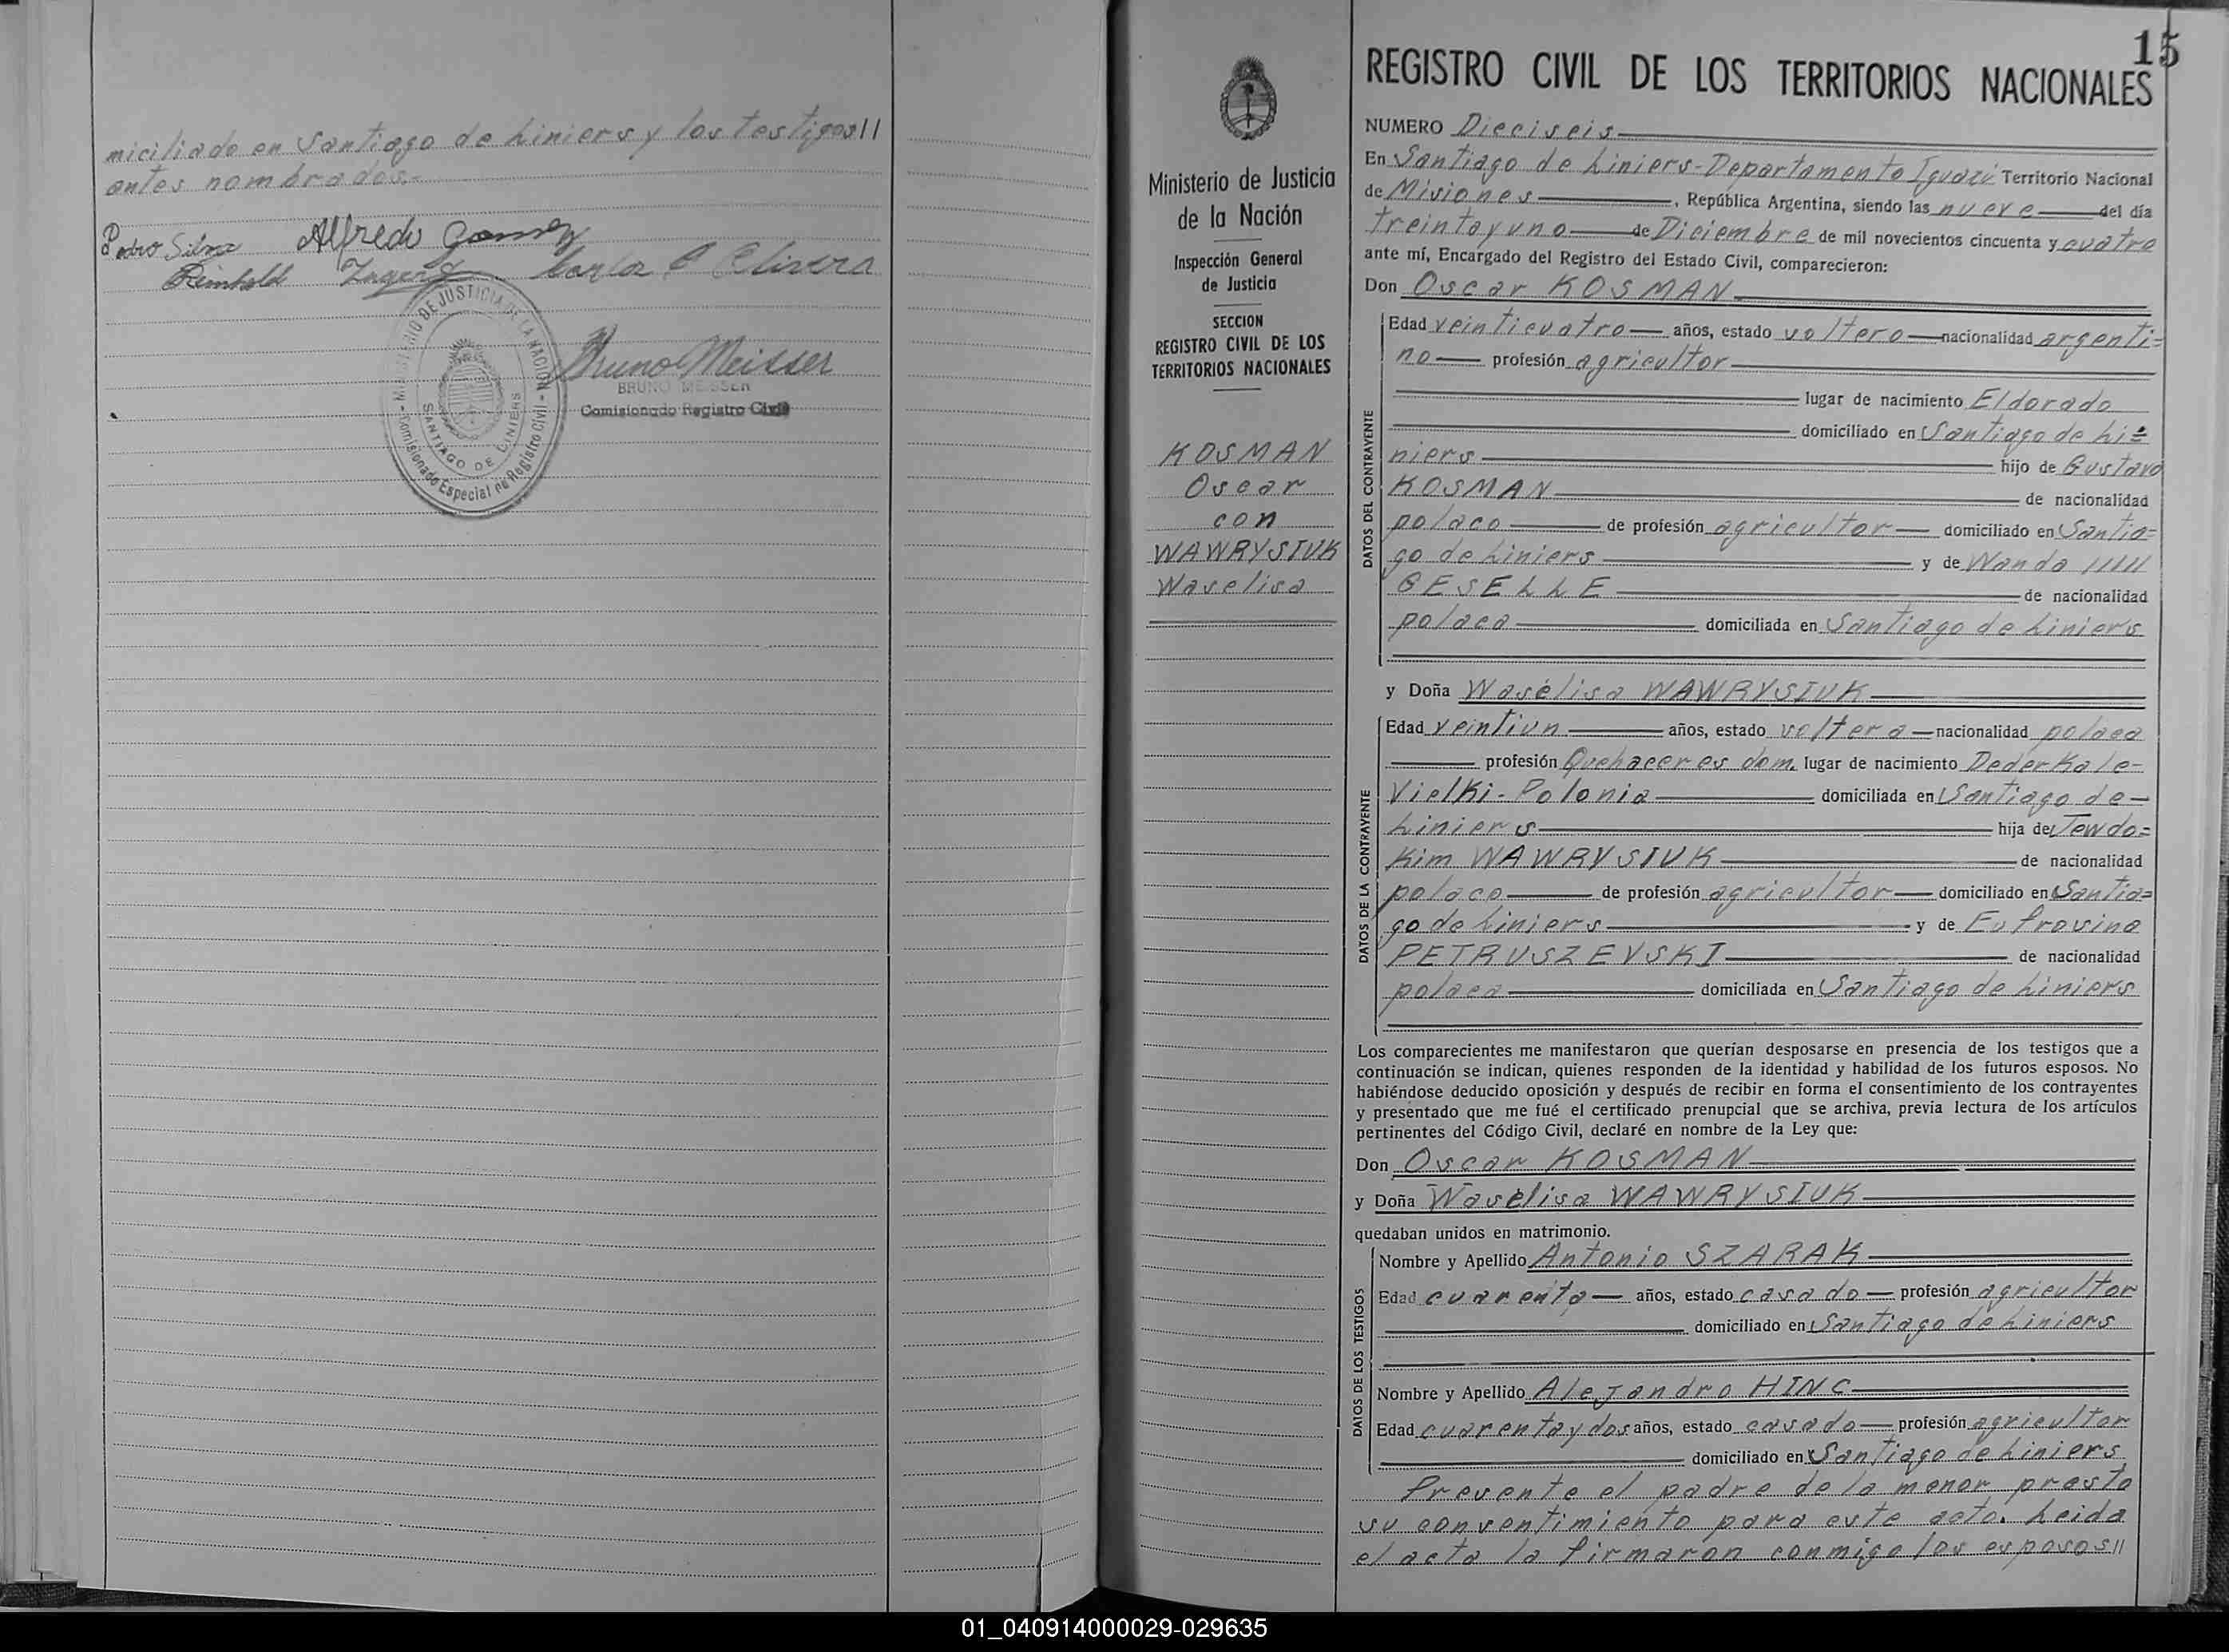 miciliado en Santiago de Liniers y los testigos//
antes nombrados.-
Pedro Silva Alfredo Gomez
Reinhold Carlos Olivera
MINISTERIO DE JUSTICIA DE LA NACION
SANTIAGO DE LINIERS
Comisionado Especial de Registro Civil
Bruno Meisser
BRUNO MEISSER
Comisionado Registro Civil
Ministerio de Justicia
de la Nación
Inspección General
de Justicia
SECCION
REGISTRO CIVIL DE LOS
TERRITORIOS NACIONALES
KOSMAN
Oscar
con
WAWRYSIUK
Waselisa
15
REGISTRO CIVIL DE LOS TERRITORIOS NACIONALES
NUMERO Dieciseis
En Santiago de Liniers-Departamento Iguazú Territorio Nacional
de Misiones, República Argentina, siendo las nueve del día
treinta y uno de Diciembre de mil novecientos cincuenta y cuatro
ante mí, Encargado del Registro del Estado Civil, comparecieron:
Don Oscar KOSMAN
DATOS DEL CONTRAYENTE
Edad veinticuatro años, estado soltero nacionalidad argenti=
no profesión agricultor
lugar de nacimiento Eldorado
domiciliado en Santiago de Li=
niers hijo de Gustavo
KOSMAN de nacionalidad
polaco de profesión agricultor domiciliado en Santia=
go de Liniers y de Wanda /////
GESELLE de nacionalidad
polaca domiciliada en Santiago de Liniers
y Doña Waselisa WAWRYSIUK
DATOS DE LA CONTRAYENTE
Edad veintiun años, estado soltera nacionalidad polaca
profesión Quehaceres dom. lugar de nacimiento Dederkale-
Vielki-Polonia domiciliada en Santiago de
Liniers hija de Jewdo=
kim WAWRYSIUK de nacionalidad
polaco de profesión agricultor domiciliado en Santia=
go de Liniers y de Eufrosina
PETRUSZEVSKI de nacionalidad
polaca domiciliada en Santiago de Liniers
Los comparecientes me manifestaron que querían desposarse en presencia de los testigos que a
continuación se indican, quienes responden de la identidad y habilidad de los futuros esposos. No
habiéndose deducido oposición y después de recibir en forma el consentimiento de los contrayentes
y presentado que me fué el certificado prenupcial que se archiva, previa lectura de los artículos
pertinentes del Código Civil, declaré en nombre de la Ley que:
Don Oscar KOSMAN
y Doña Waselisa WAWRYSIUK
quedaban unidos en matrimonio.
DATOS DE LOS TESTIGOS
Nombre y Apellido Antonio SZARAK
Edad cuarenta años, estado casado profesión agricultor
domiciliado en Santiago de Liniers
Nombre y Apellido Alejandro HINC
Edad cuarenta y dos años, estado casado profesión agricultor
domiciliado en Santiago de Liniers
Presente el padre de la menor presto
su consentimiento para este acto. Leida
el acta la firmaron conmigo los esposos//
01_040914000029-029635